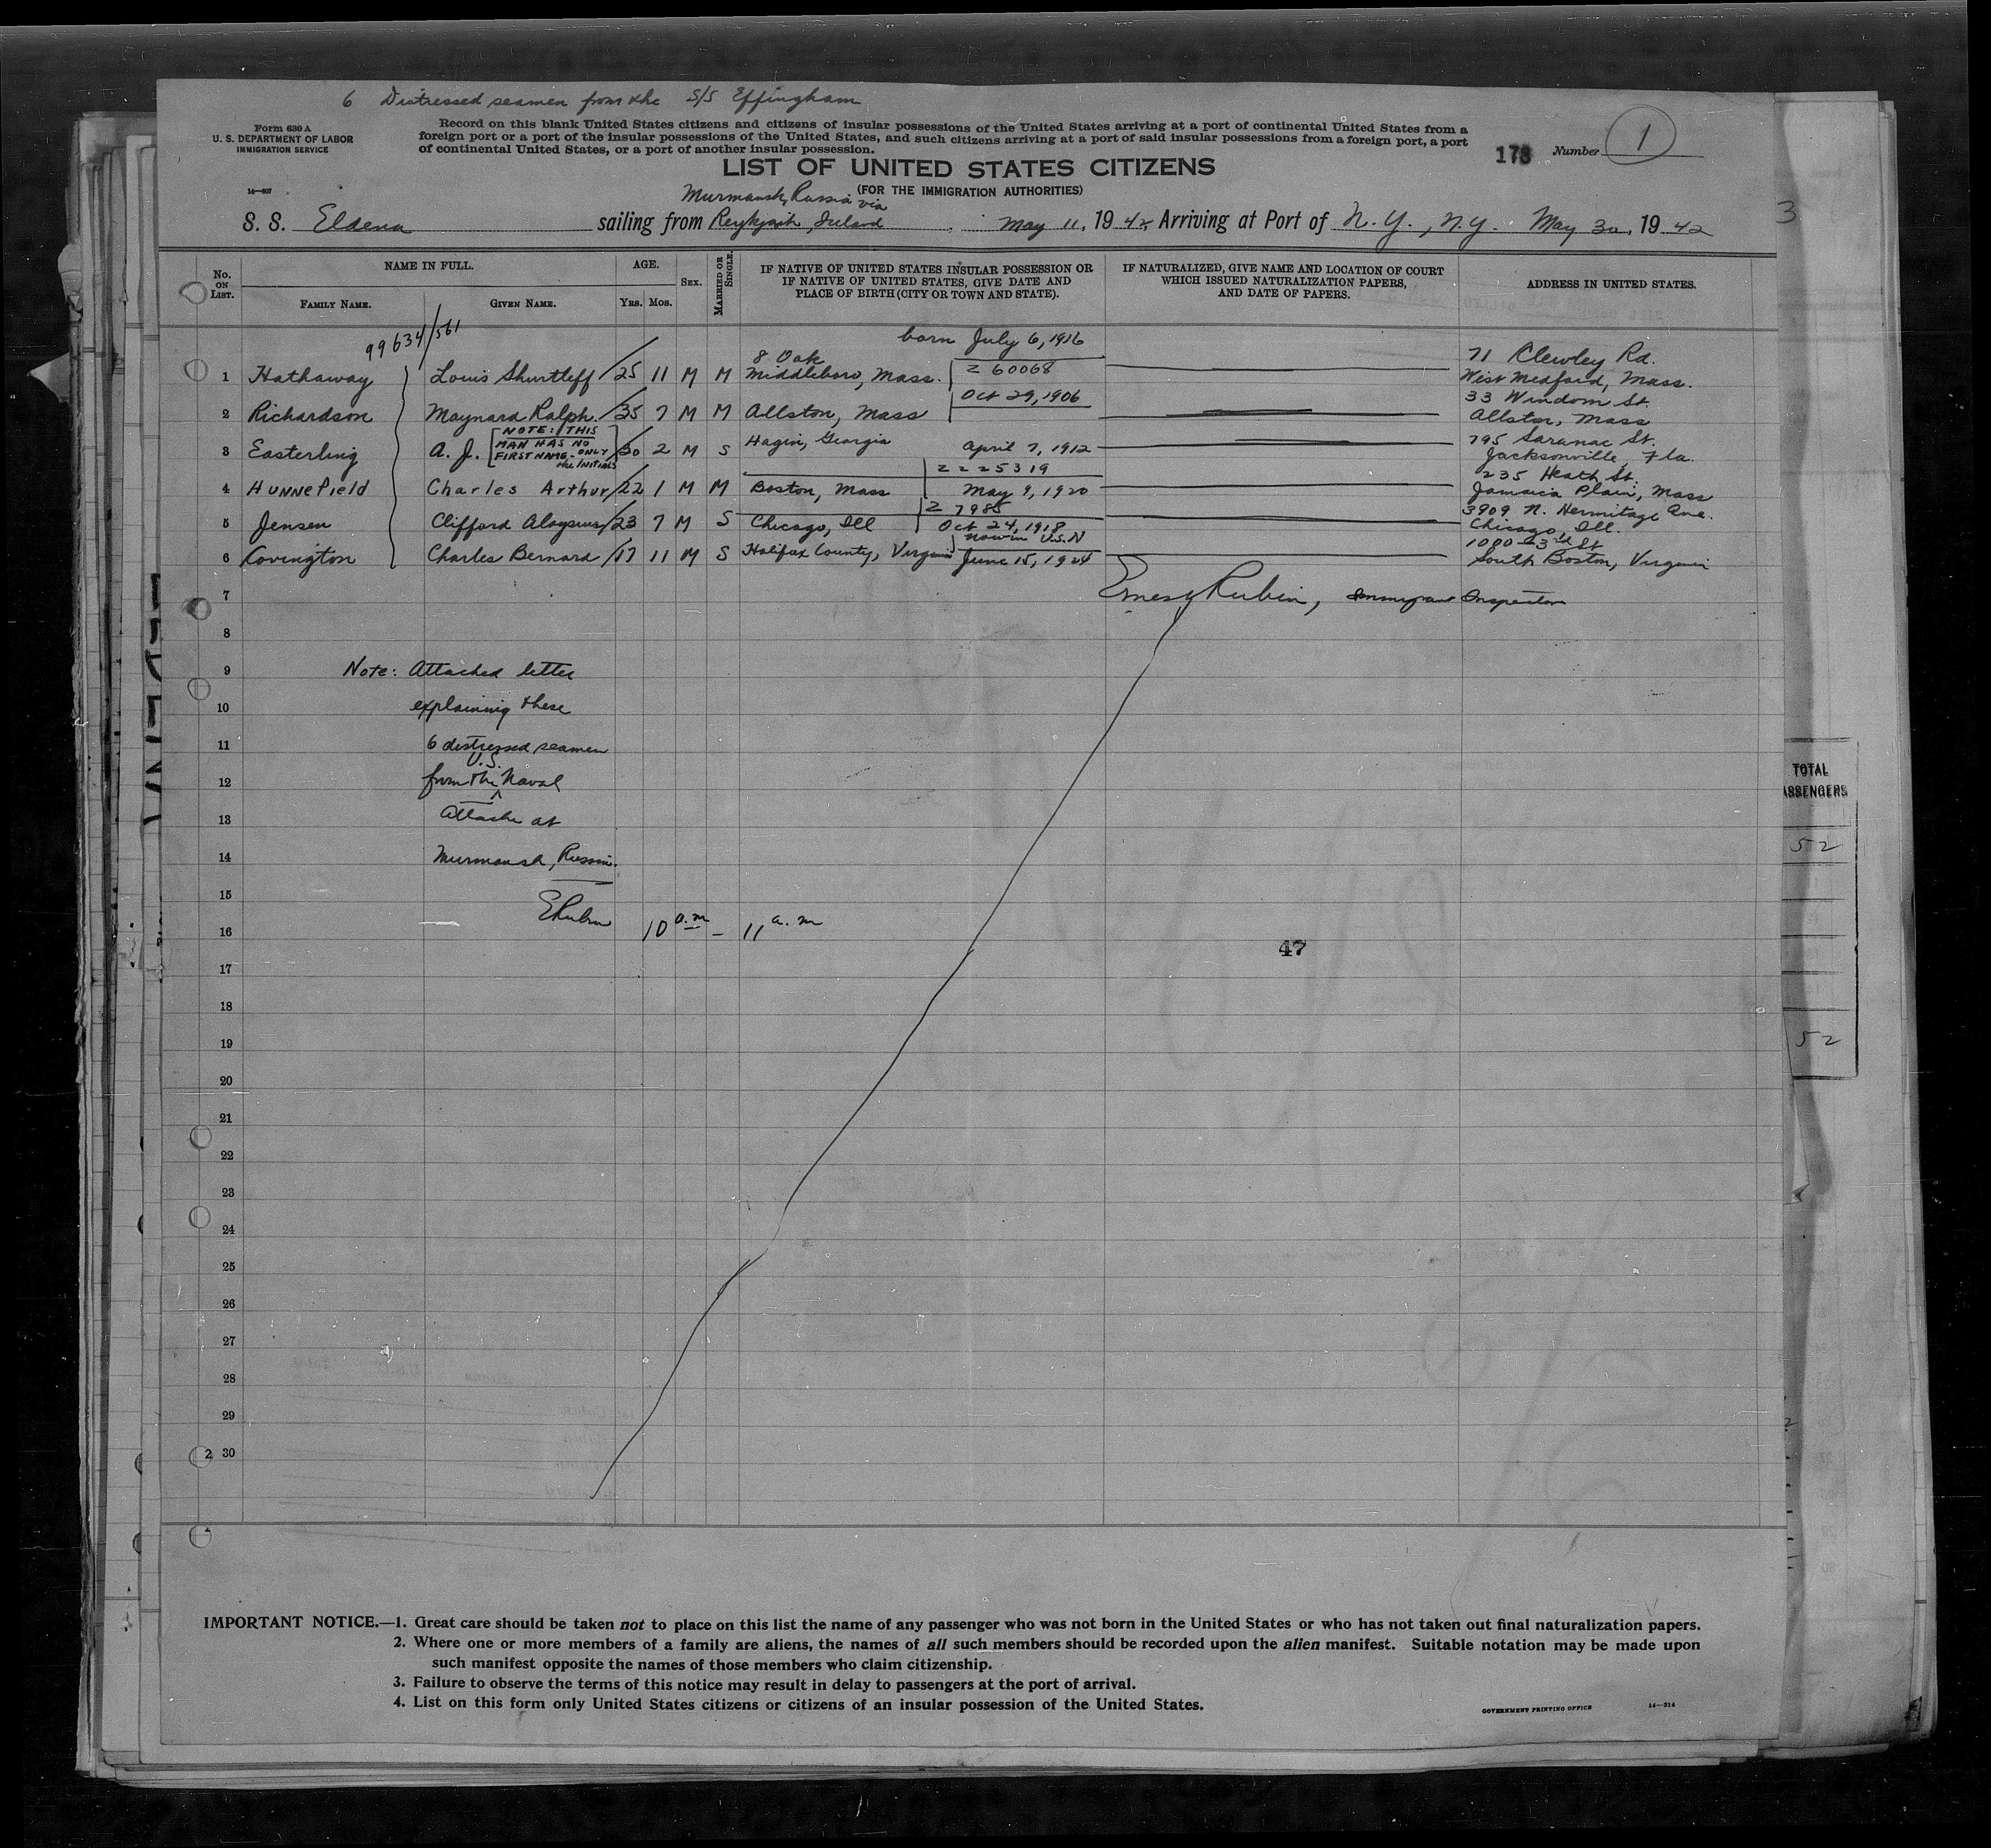 6 Distressed seamen from the S/S Effingham
Form 630 A
U. S. DEPARTMENT OF LABOR
IMMIGRATION SERVICE
Record on this blank United States citizens and citizens of insular possessions of the United States arriving at a port of continental United States from a
foreign port or a port of the insular possessions of the United States, and such citizens arriving at a port of said insular possessions from a foreign port, a port
of continental United States, or a port of another insular possession.
178 Number 1
LIST OF UNITED STATES CITIZENS
(FOR THE IMMIGRATION AUTHORITIES)
Murmansk, Russia via
S. S. Eldena sailing from Reykjavik, Iceland, May 11, 1942, Arriving at Port of N. Y., N.Y. May 30, 1942
3
No. ON LIST.
NAME IN FULL.
FAMILY NAME.
GIVEN NAME.
AGE.
YRS. MOS.
SEX.
MARRIED OR SINGLE.
IF NATIVE OF UNITED STATES INSULAR POSSESSION OR
IF NATIVE OF UNITED STATES, GIVE DATE AND
PLACE OF BIRTH (CITY OR TOWN AND STATE).
IF NATURALIZED, GIVE NAME AND LOCATION OF COURT
WHICH ISSUED NATURALIZATION PAPERS,
AND DATE OF PAPERS.
ADDRESS IN UNITED STATES.
99634/561
born July 6, 1916
8 Oak
71 Clewley Rd.
1 Hathaway Louis Shurtleff 25 11 M M Middleboro, Mass. Z 60068 West Medford, Mass.
Oct 29, 1906 33 Windom St.
2 Richardson Maynard Ralph. 35 7 M M Allston, Mass Allston, Mass
NOTE: THIS
MAN HAS NO
FIRST NAME - ONLY
INITIALS
795 Saranac St.
3 Easterling A. J. 30 2 M S Hagin, Georgia April 7, 1912 Jacksonville, Fla.
Z 225319 235 Heath St.
4 Hunnefield Charles Arthur 22 1 M M Boston, Mass May 9, 1920 Jamaica Plain, Mass
Z 7985 3909 N. Hermitage Ave.
5 Jensen Clifford Aloysius 23 7 M S Chicago, Ill Oct 24, 1918 Chicago, Ill.
now in U.S.N 1000 23rd St
6 Covington Charles Bernard 17 11 M S Halifax County, Virginia June 15, 1924 South Boston, Virginia
7 Ernest Rubin, Immigrant Inspector
8
9 Note: Attached letter
10 explaining these
11 6 distressed seamen
U.S.
12 from the Naval
13 Attache at
14 Murmansk, Russia.
15 ERubin
16 10 a.m - 11 a.m
47
17
18
19
20
21
22
23
24
25
26
27
28
29
30
TOTAL
52
52
IMPORTANT NOTICE.—1. Great care should be taken not to place on this list the name of any passenger who was not born in the United States or who has not taken out final naturalization papers.
2. Where one or more members of a family are aliens, the names of all such members should be recorded upon the alien manifest. Suitable notation may be made upon
such manifest opposite the names of those members who claim citizenship.
3. Failure to observe the terms of this notice may result in delay to passengers at the port of arrival.
4. List on this form only United States citizens or citizens of an insular possession of the United States.
GOVERNMENT PRINTING OFFICE
14—214